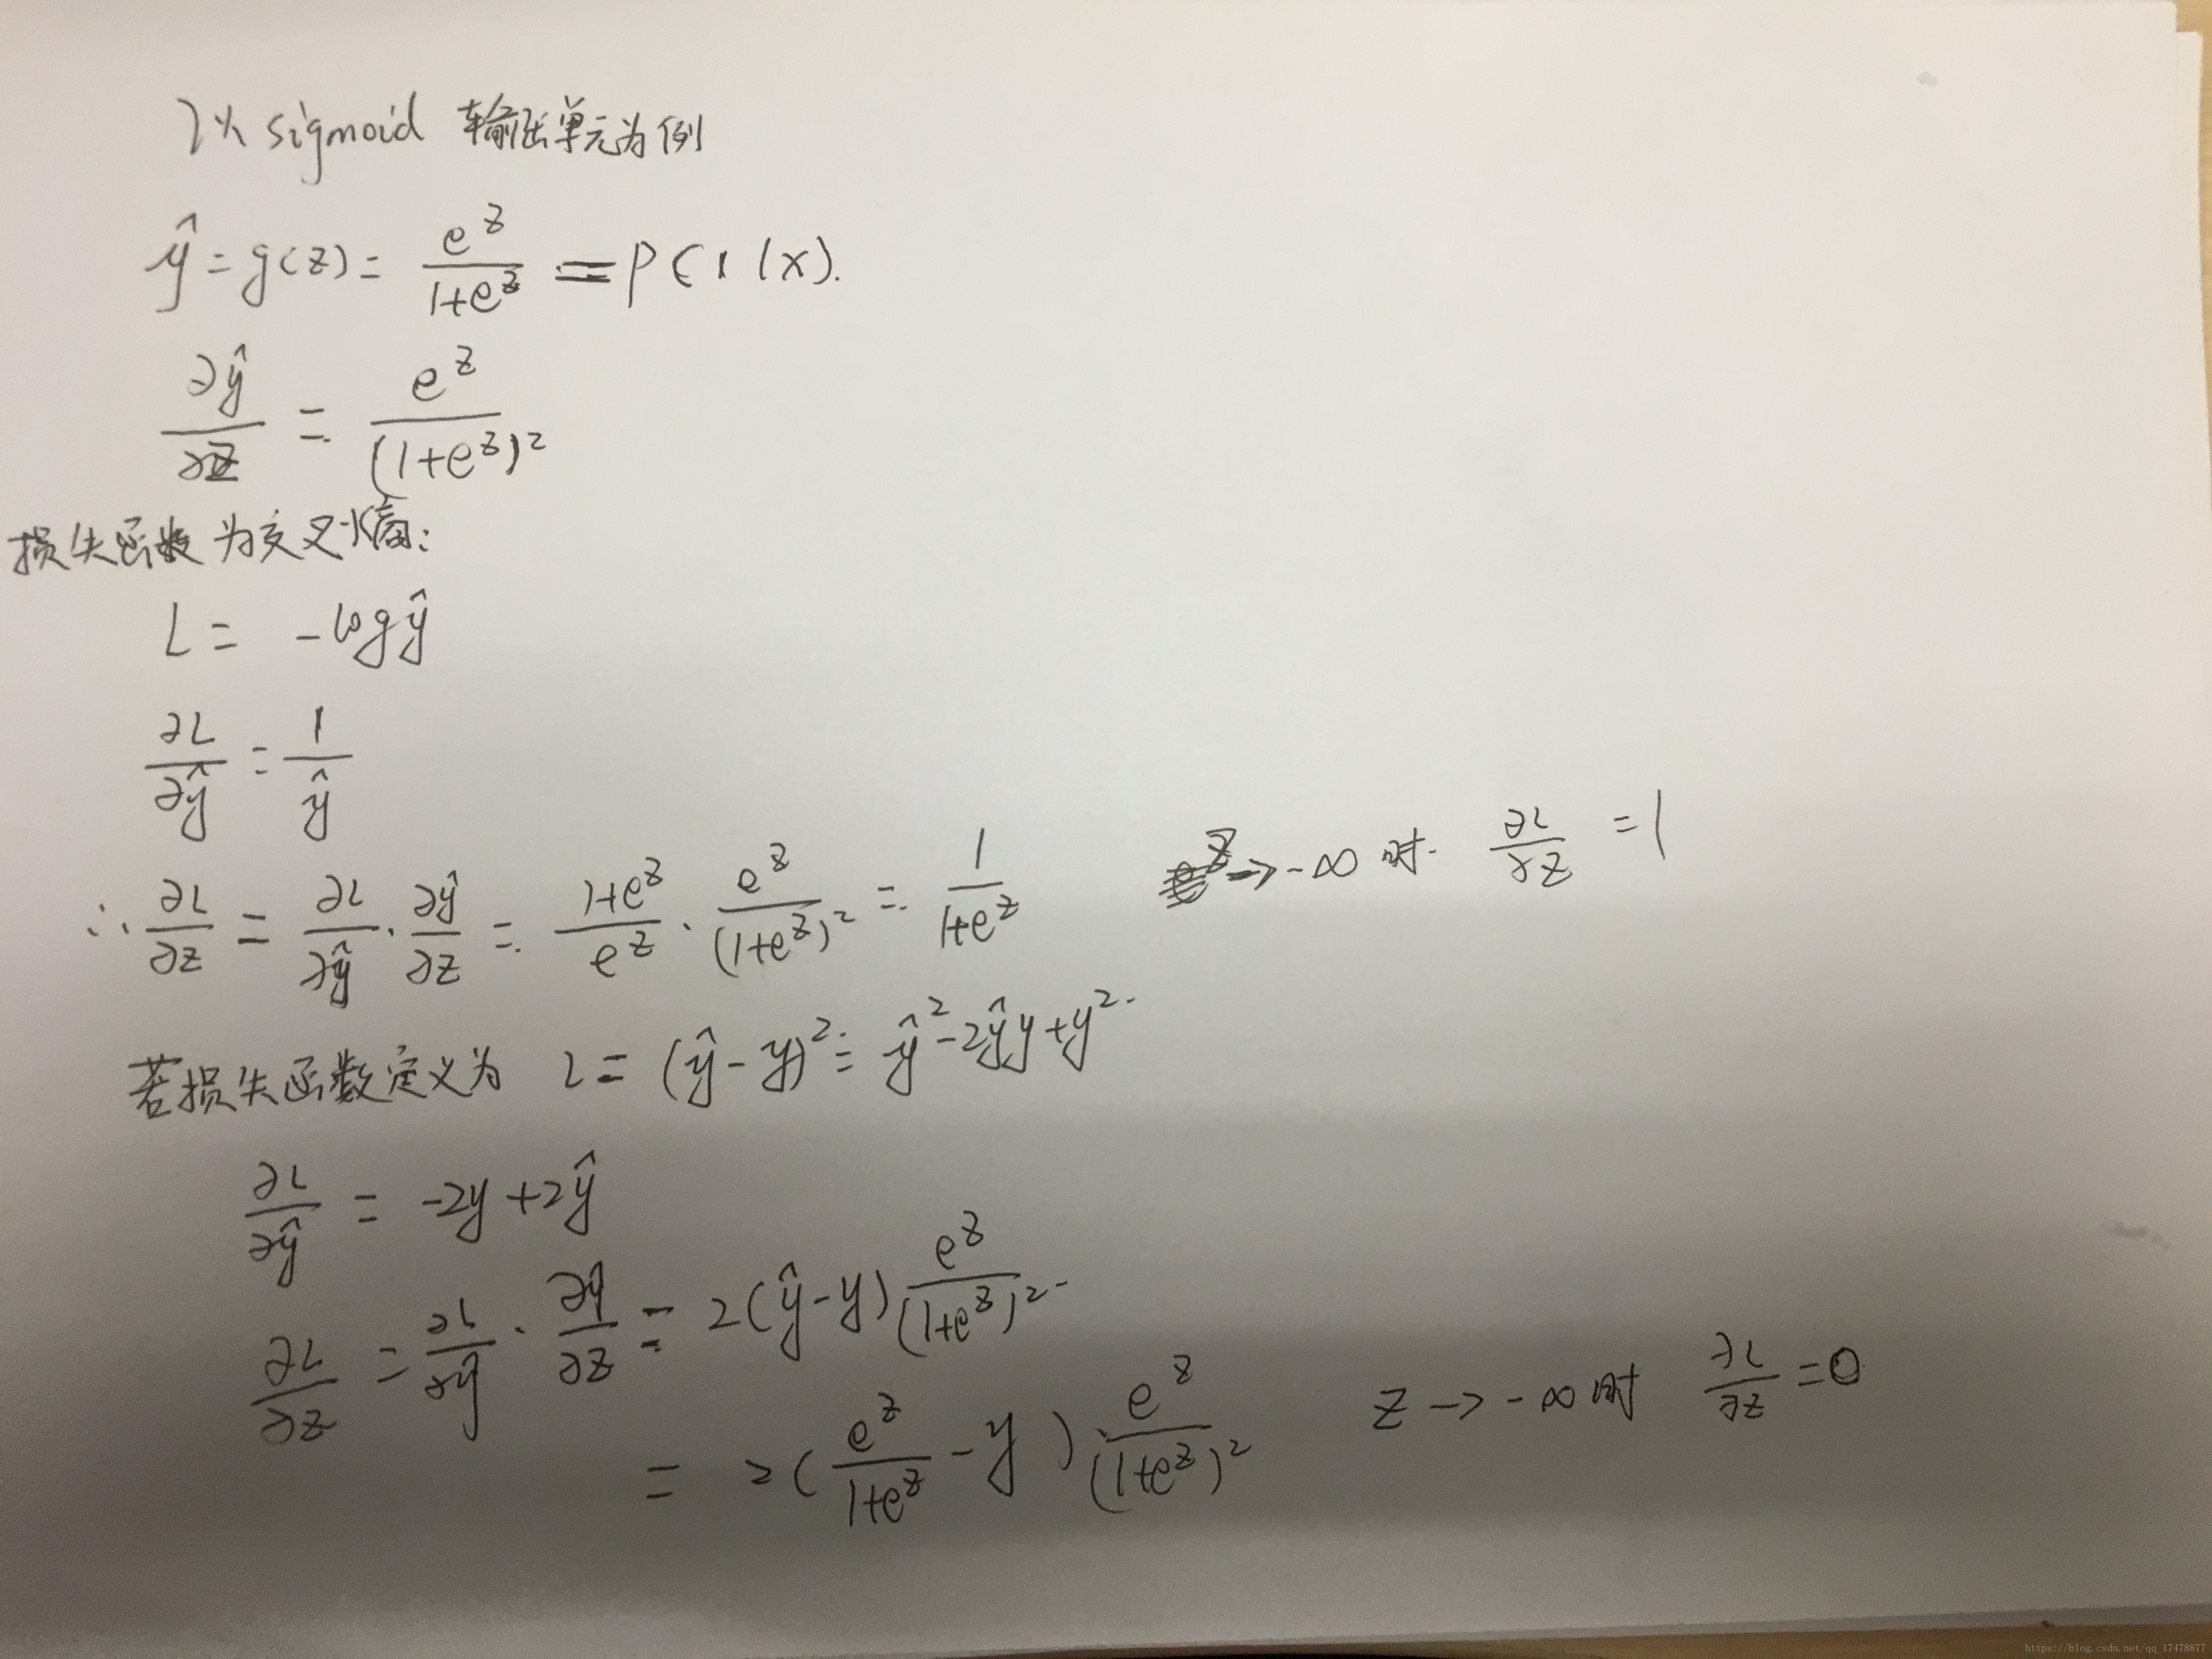 以sigmoid 输出单元为例
ŷ = g(z) = e^z/(1+e^z) = P(1|x).
∂ŷ/∂z = e^z/(1+e^z)²
损失函数为交叉熵:
L = -logŷ
∂L/∂ŷ = 1/ŷ
∴ ∂L/∂z = ∂L/∂ŷ · ∂ŷ/∂z = (1+e^z)/e^z · e^z/(1+e^z)² = 1/(1+e^z) z→-∞ 时. ∂L/∂z = 1
若损失函数定义为 L = (ŷ-y)² = ŷ²-2ŷy+y².
∂L/∂ŷ = -2y+2ŷ
∂L/∂z = ∂L/∂ŷ · ∂ŷ/∂z = 2(ŷ-y) e^z/(1+e^z)²
= 2(e^z/(1+e^z) - y)·e^z/(1+e^z)² z→-∞时 ∂L/∂z = 0
https://blog.csdn.net/qq_17478877